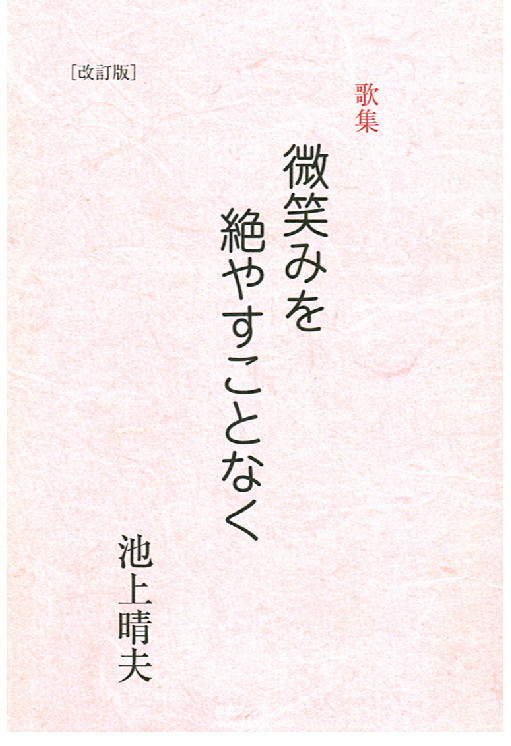 歌集
微笑みを
絶やすことなく
池上晴夫
［改訂版］